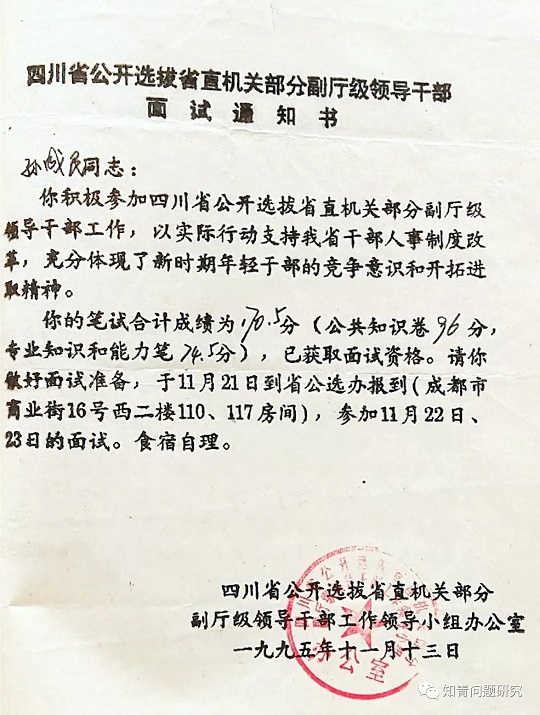 四川省公开选拔省直机关部分副厅级领导干部
面试通知书
孙成民同志：
你积极参加四川省公开选拔省直机关部分副厅级
领导干部工作，以实际行动支持我省干部人事制度改
革，充分体现了新时期年轻干部的竞争意识和开拓进
取精神。
你的笔试合计成绩为170.5分（公共知识卷96分，
专业知识和能力笔74.5分），已获取面试资格。请你
做好面试准备，于11月21日到省公选办报到（成都市
商业街16号西二楼110、117房间），参加11月22日、
23日的面试。食宿自理。
四川省公开选拔省直机关部分
副厅级领导干部工作领导小组办公室
一九九五年十一月十三日
知青问题研究